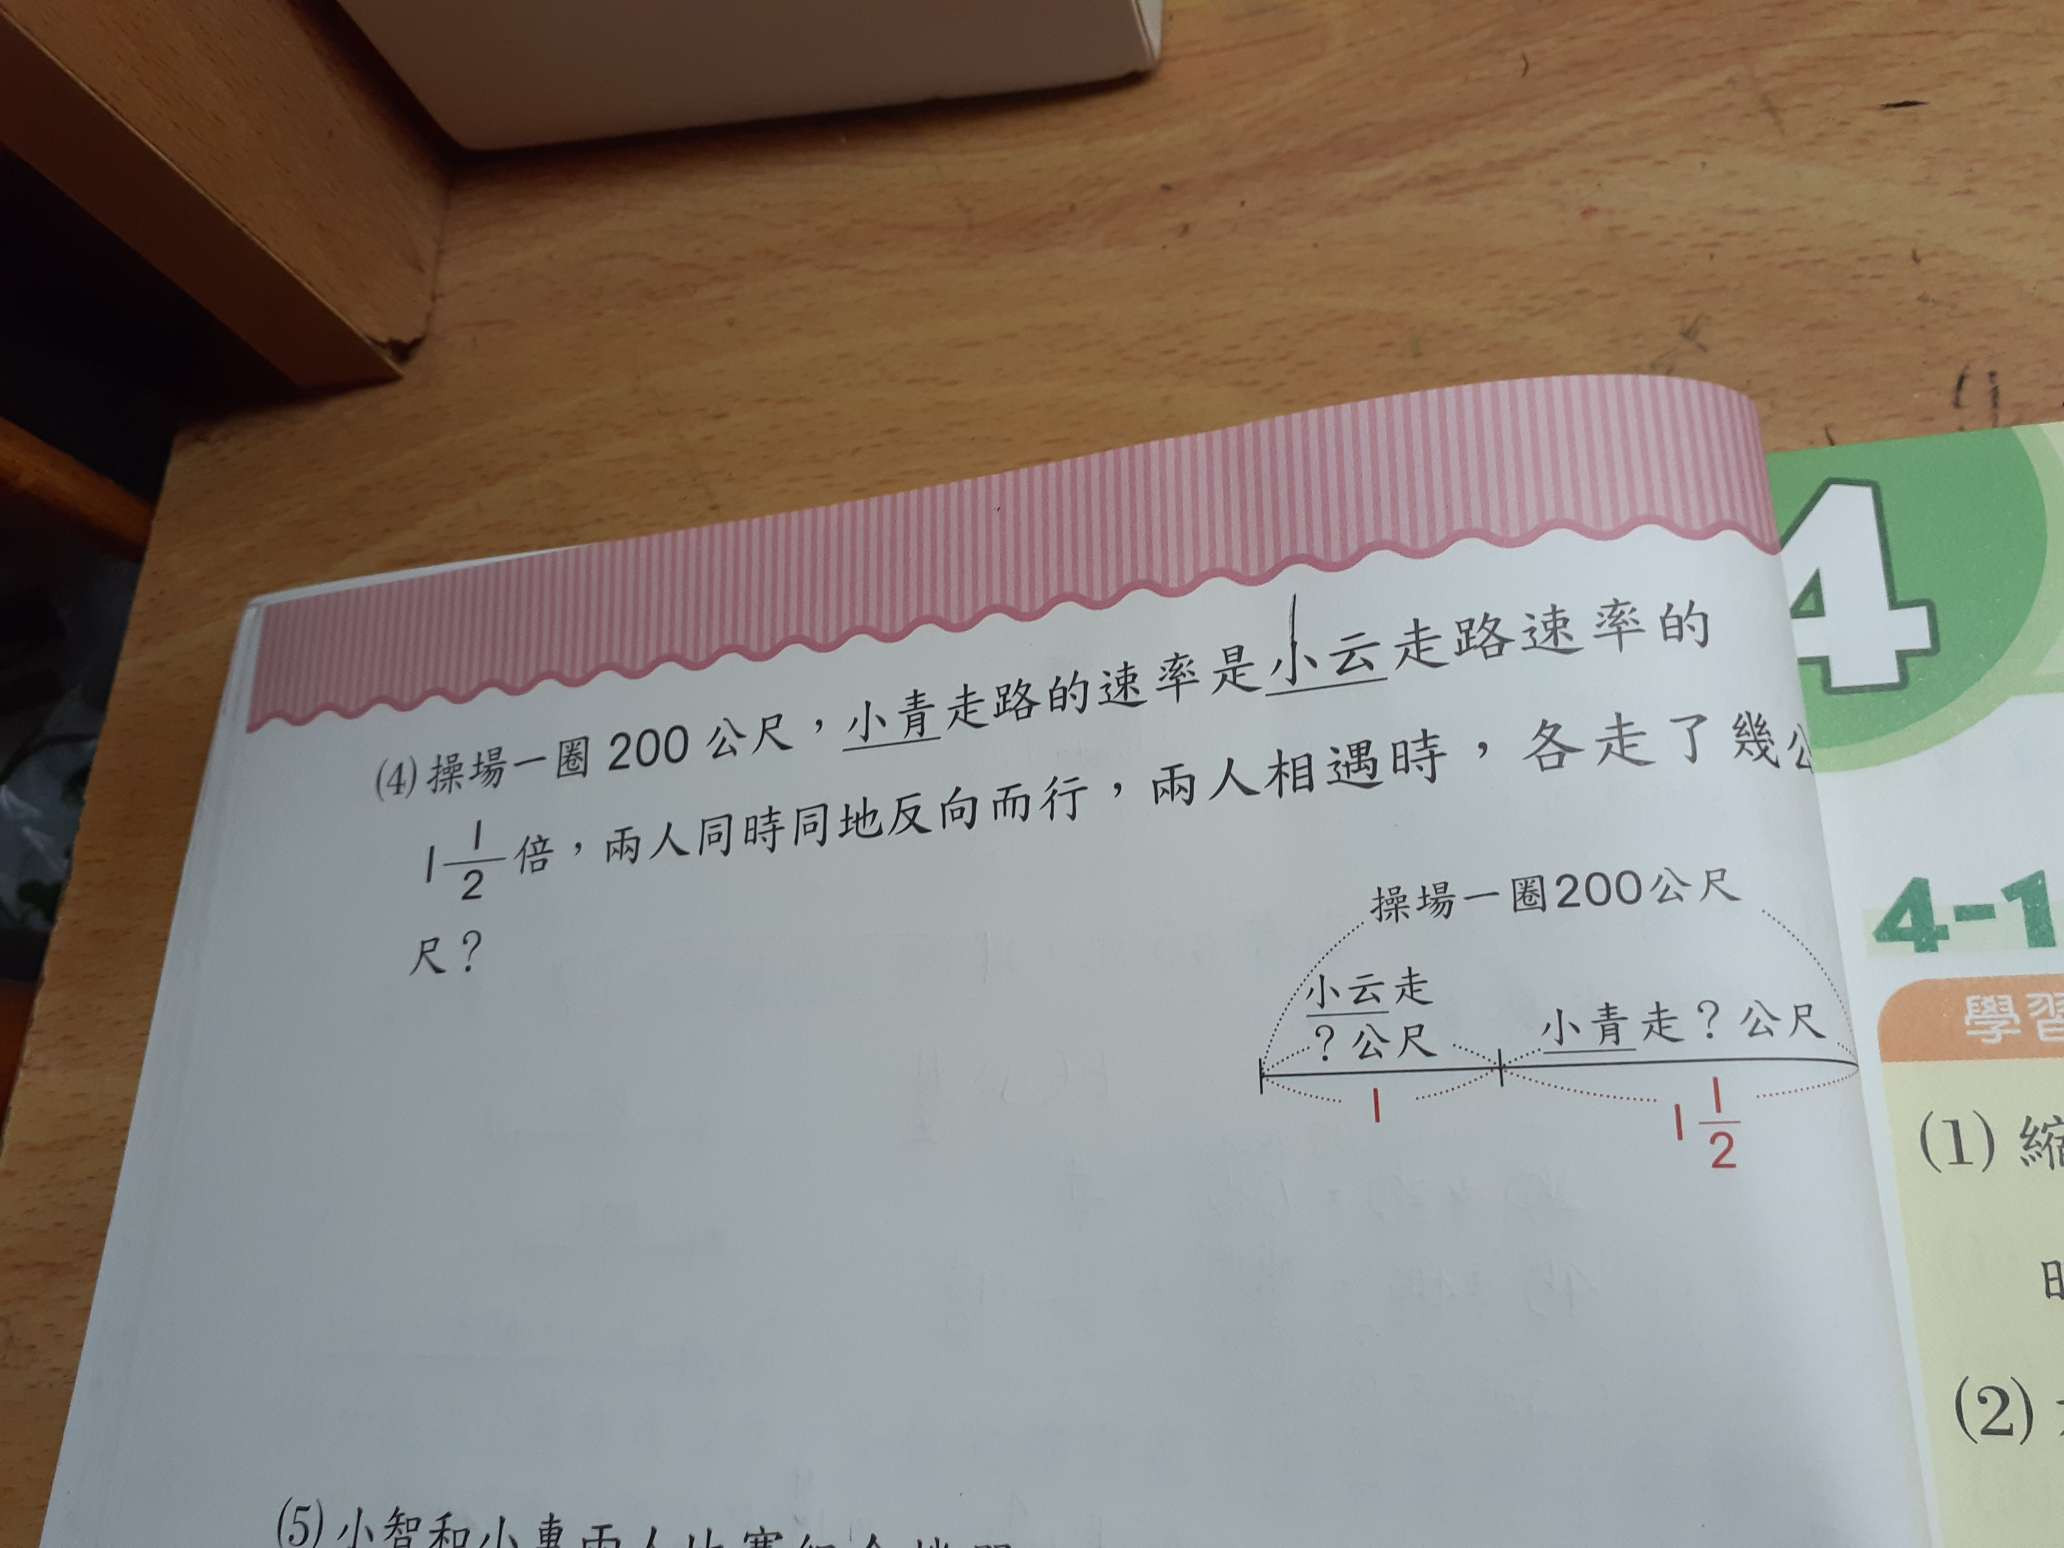 (4)操場一圈 200 公尺，小青走路的速率是小云走路速率的
1 1/2 倍，兩人同時同地反向而行，兩人相遇時，各走了幾公
尺？
操場一圈200公尺
小云走
？公尺
小青走？公尺
1
1 1/2
(5)小智和小
4
4-1
學習
(1) 縮
(2)